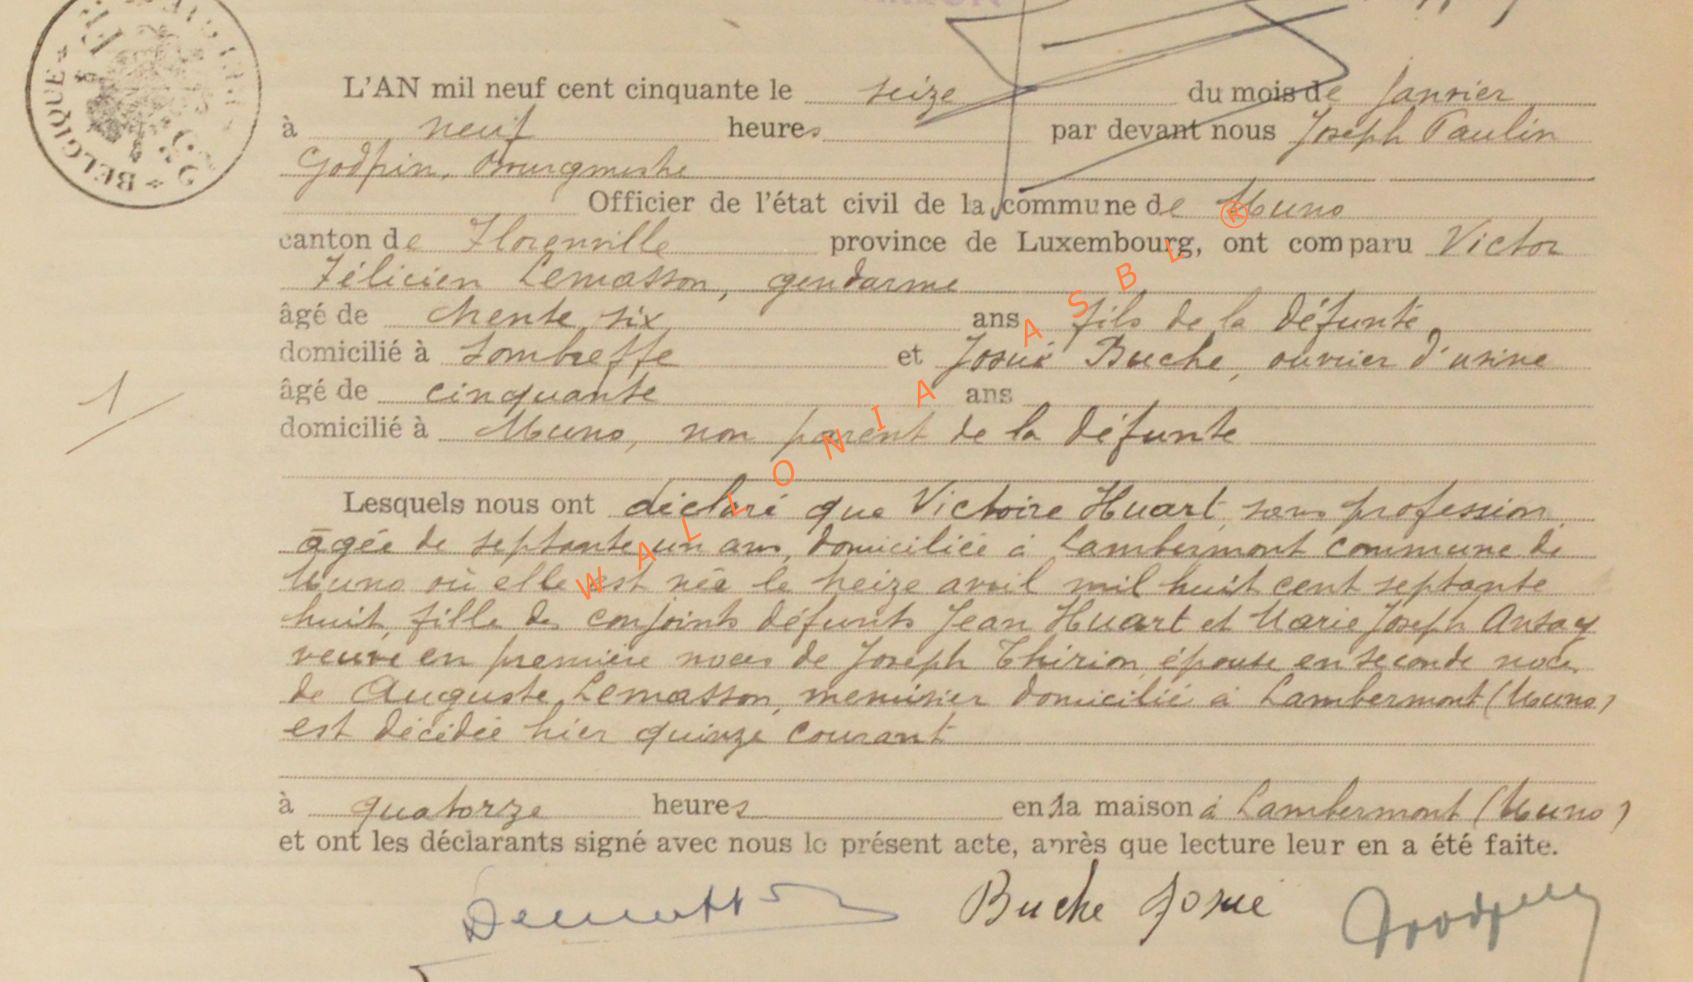 BELGIQUE
L'AN mil neuf cent cinquante le seize du mois de Janvier
à neuf heures par devant nous Joseph Paulin
Godfrin, Bourgmestre
Officier de l'état civil de la commune de Muno
canton de Florenville province de Luxembourg, ont comparu Victor
Félicien Lemasson, gendarme
âgé de trente six ans fils de la défunte,
domicilié à Sombreffe et Josué Buche, ouvrier d'usine
âgé de cinquante ans
domicilié à Muno, non parent de la défunte
1
Lesquels nous ont déclaré que Victoire Huart, sans profession,
âgée de septante un ans, domiciliée à Lambermont commune de
Muno où elle est née le treize avril mil huit cent septante
huit, fille des conjoints défunts Jean Huart et Marie Joseph Ansay
veuve en première noces de Joseph Thirion, épouse en seconde noces
de Auguste Lemasson, menuisier domicilié à Lambermont (Muno)
est décédée hier quinze courant
à quatorze heures en sa maison à Lambermont (Muno)
et ont les déclarants signé avec nous le présent acte, après que lecture leur en a été faite.
Buche Josué
WALLONIA ASBL ®